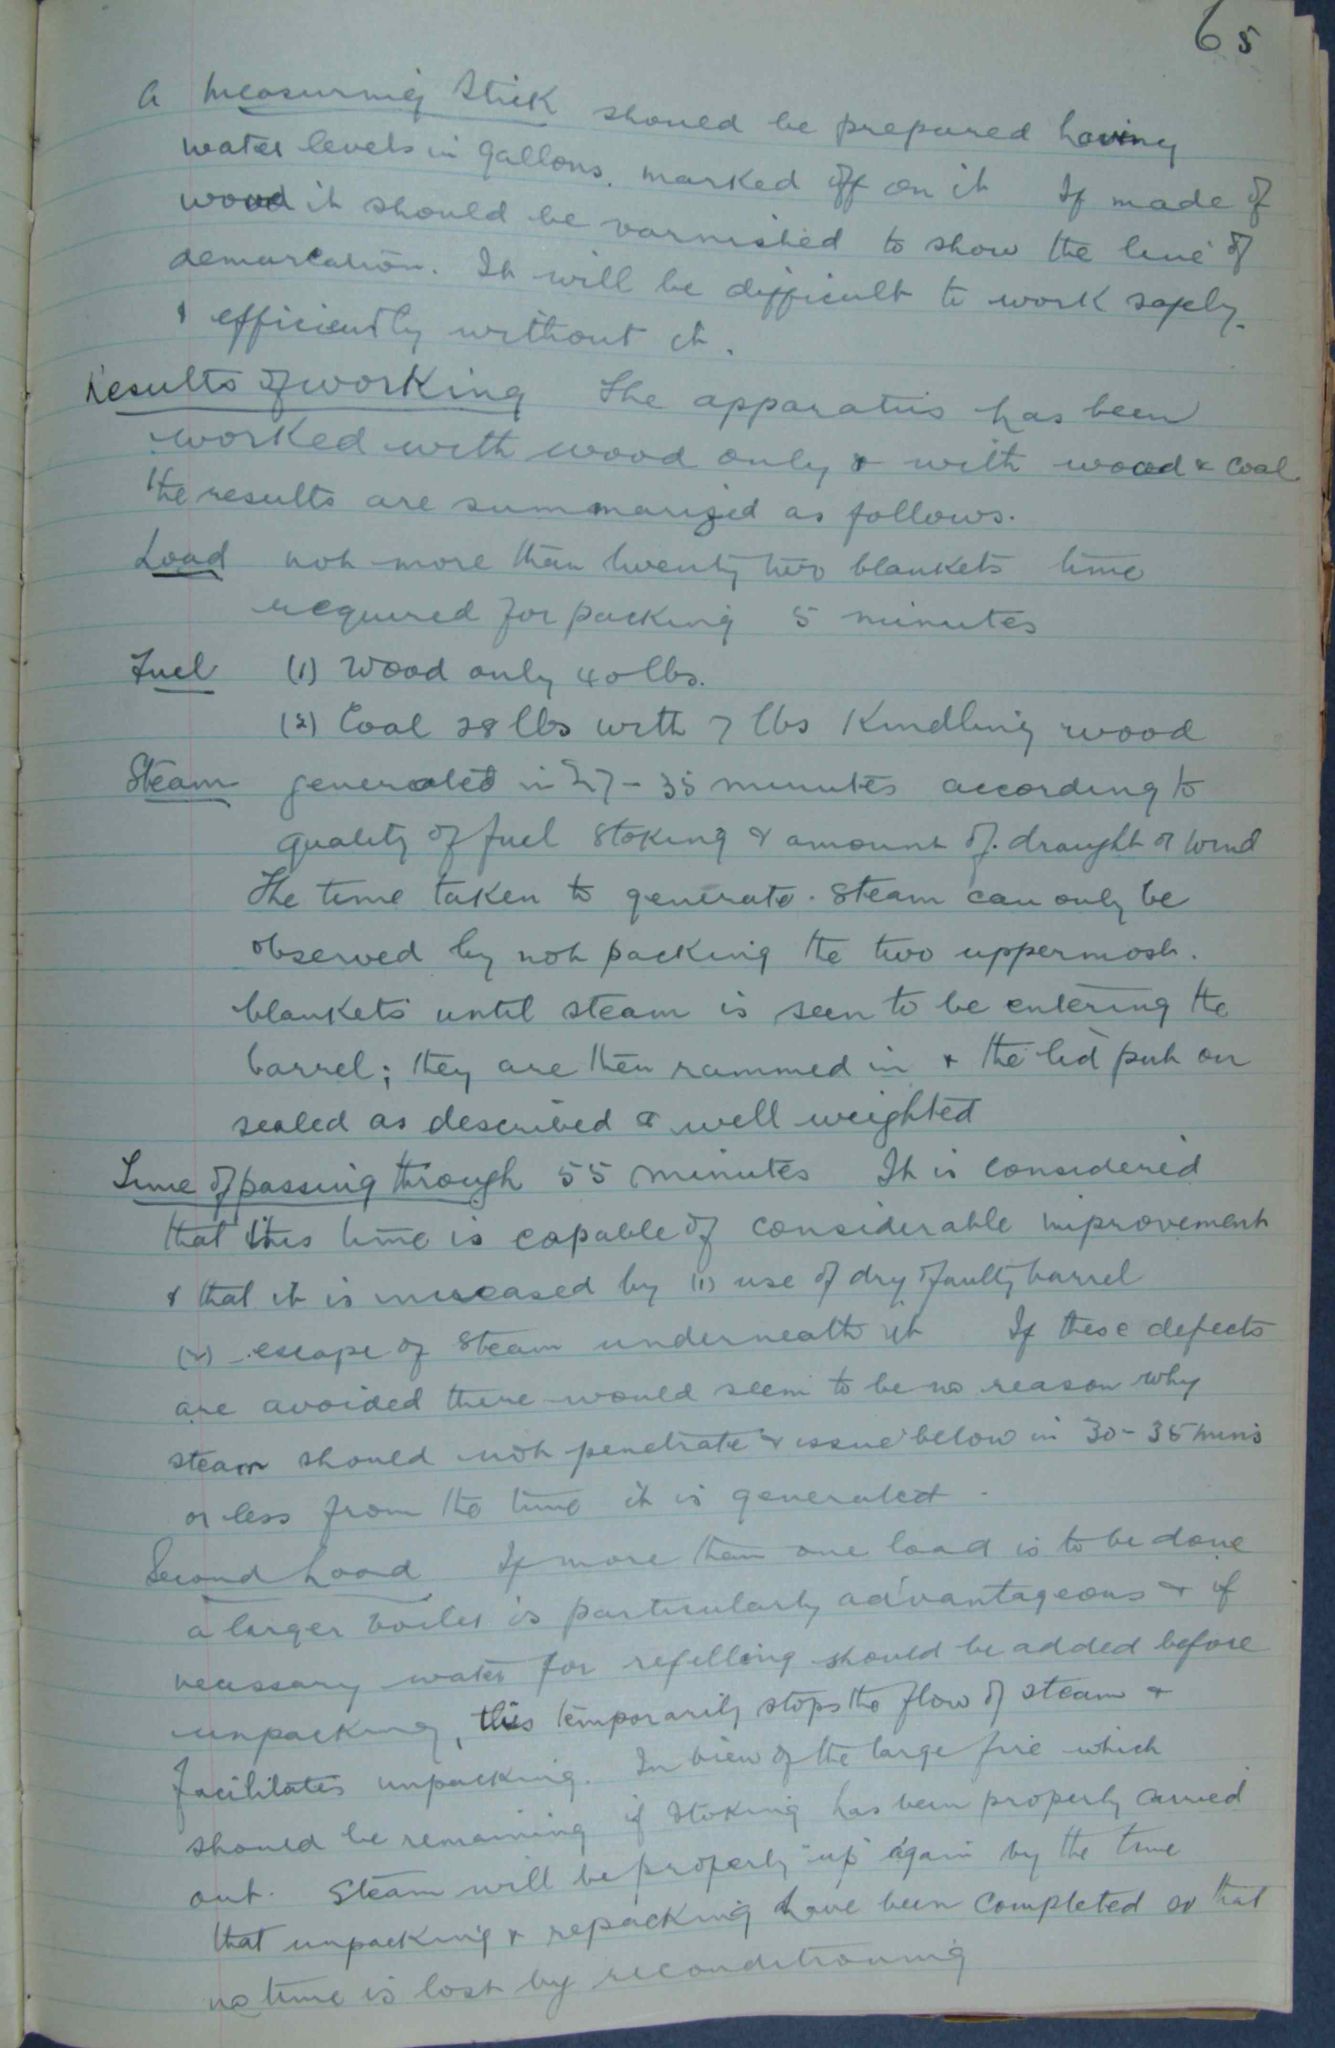 65
A measuring stick should be prepared having
water levels in gallons, marked off on it If made of
wood it should be varnished to show the line of
demarcation. It will be difficult to work safely
& efficiently without it.
Results of working The apparatus has been
worked with wood only & with wood & coal
the results are summarized as follows.
Load not more than twenty two blankets time
required for packing 5 minutes
Fuel (1) Wood only 40 lbs.
(2) Coal 28 lbs with 7 lbs Kindling wood
Steam generated in 27 - 35 minutes according to
quality of fuel stoking & amount of draught or wind
The time taken to generate steam can only be
observed by not packing the two uppermost
blankets until steam is seen to be entering the
barrel; they are then rammed in & the lid put on
sealed as described & well weighted
Time of passing through 55 minutes It is considered
that this time is capable of considerable improvement
& that it is increased by (1) use of dry faulty barrel
(2) escape of steam underneath it If these defects
are avoided there would seem to be no reason why
steam should not penetrate & issue below in 30 - 35 mins
or less from the time it is generated.
Second Load If more than one load is to be done
a larger boiler is particularly advantageous & if
necessary water for refilling should be added before
unpacking, this temporarily stops the flow of steam &
facilitates unpacking. In view of the large fire which
should be remaining if stoking has been properly carried
out. Steam will be properly "up" again by the time
that unpacking & repacking have been completed so that
no time is lost by reconditioning